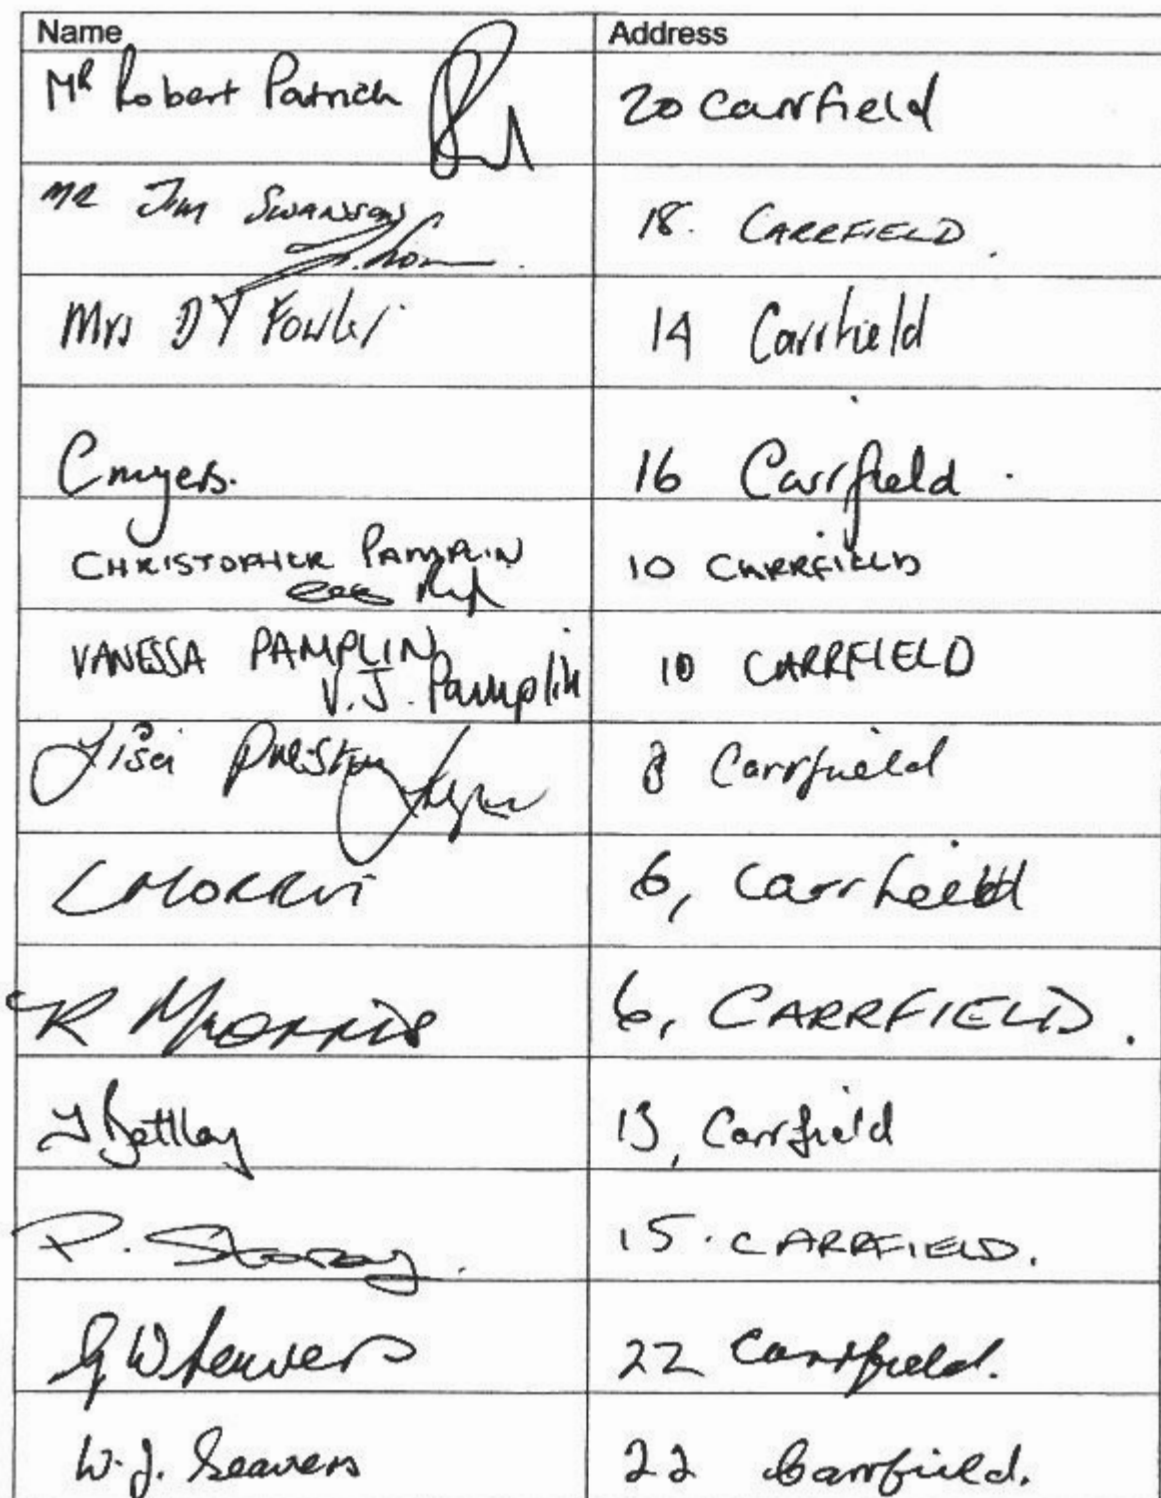 Name Address
Mr Robert Patrick 20 Carrfield
MR JIM SWANSON 18. CARRFIELD.
Mrs D Y Fowler 14 Carrfield
C myers. 16 Carrfield.
CHRISTOPHER PAMPLIN 10 CARRFIELD
VANESSA PAMPLIN 10 CARRFIELD
V.J. Pamplin
Lisa Preston 8 Carrfield
L MORRIS 6, Carrfield
R MORRIS 6, CARRFIELD.
15. CARRFIELD.
P. Storey.
Carrfield
22 Carrfield.
W.J. Seavers 22 Carrfield.